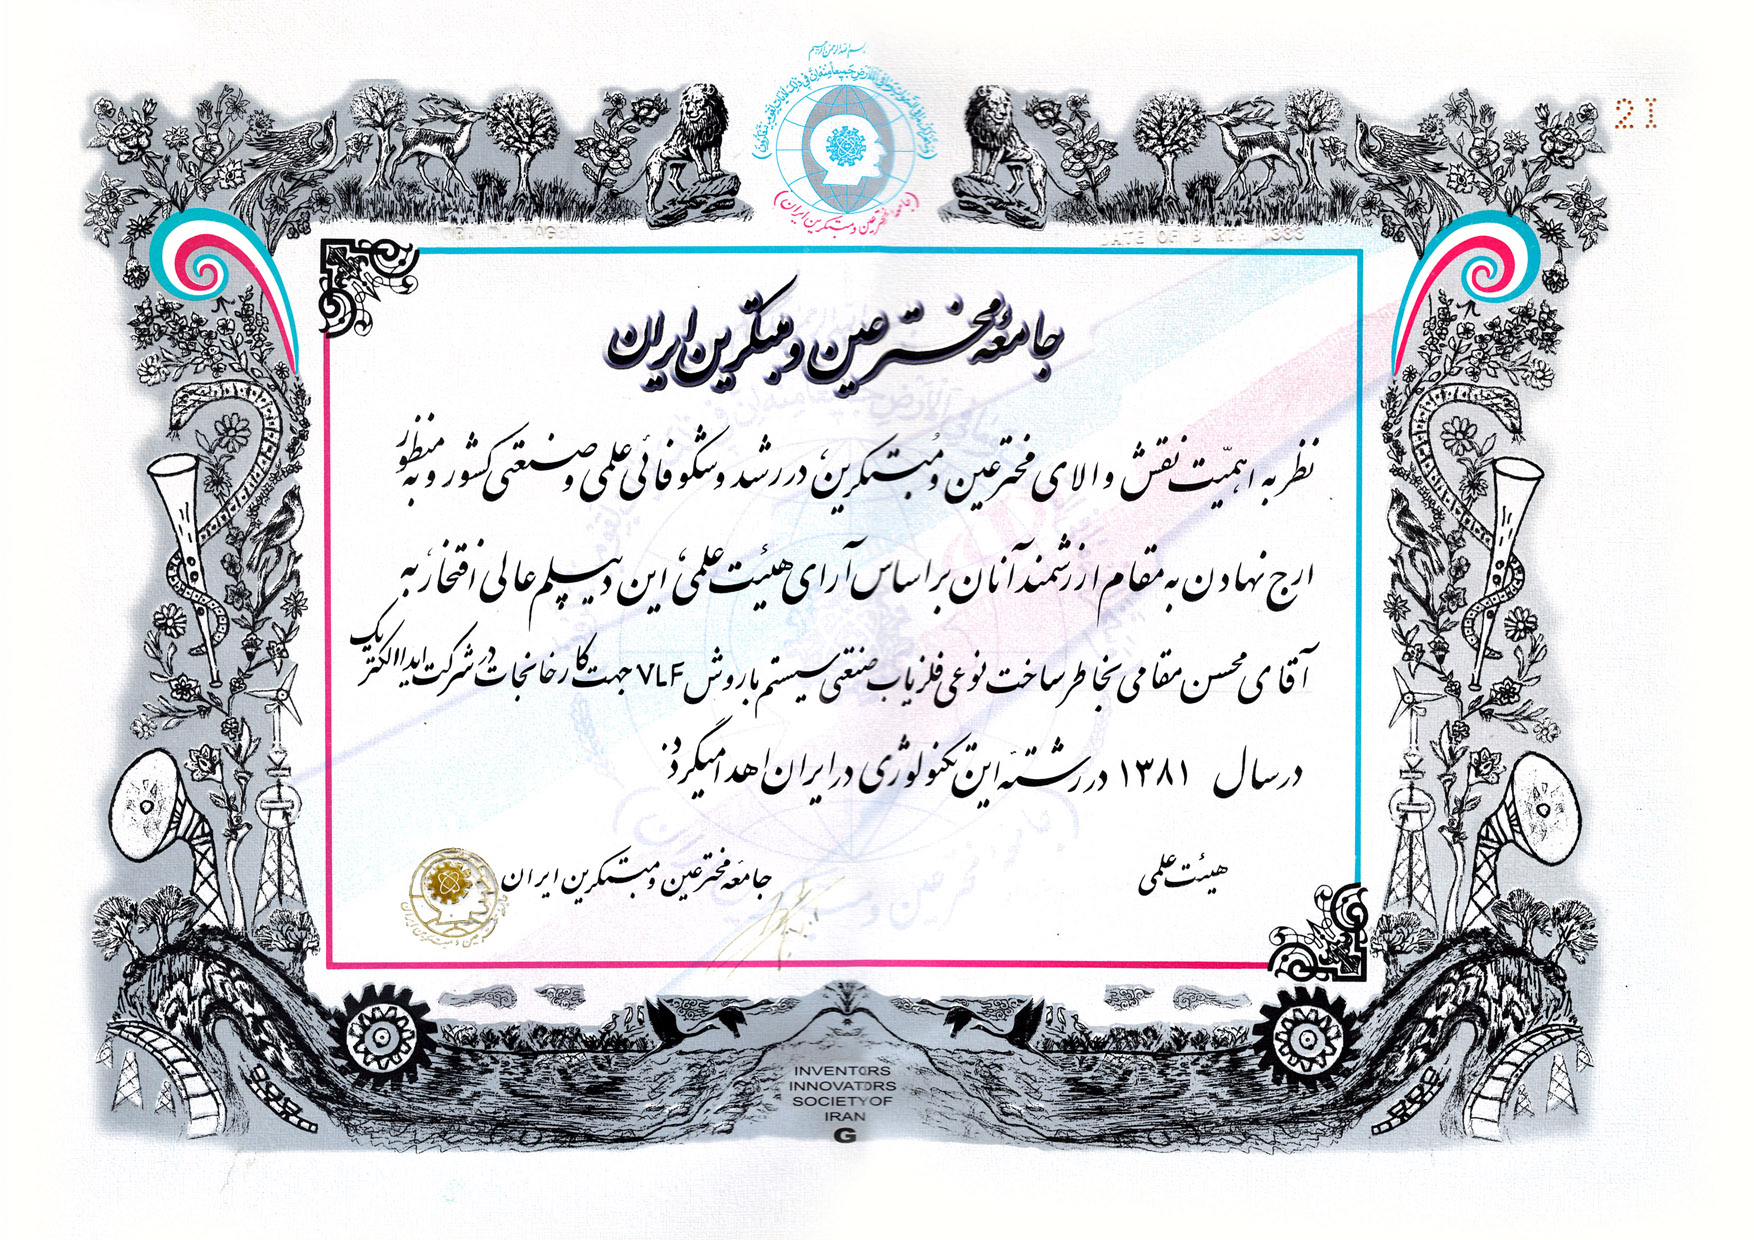 بسم الله الرحمن الرحیم
21
(جامعه مخترعین و مبتکرین ایران)
DATE OF BIRTH 1333
جامعهٔ مخترعین و مبتکرین ایران
نظر به اهمیّت نقش والای مخترعین و مُبتکرین، در رشد و شکوفائی علمی و صنعتی کشور و به منظور
ارج نهادن به مقام ارزشمند آنان بر اساس آرای هیئت علمی، این دیپلم عالی افتخار، به
آقای محسن مقامی بخاطر ساخت نوعی فلزیاب صنعتی سیستم با روش VLF جهت کارخانجات در شرکت ایدا الکتریک
در سال ۱۳۸۱ در رشتهٔ این تکنولوژی در ایران اهدا میگردد.
هیئت علمی
جامعهٔ مخترعین و مبتکرین ایران
INVENTORS
INNOVATORS
SOCIETY OF
IRAN
G